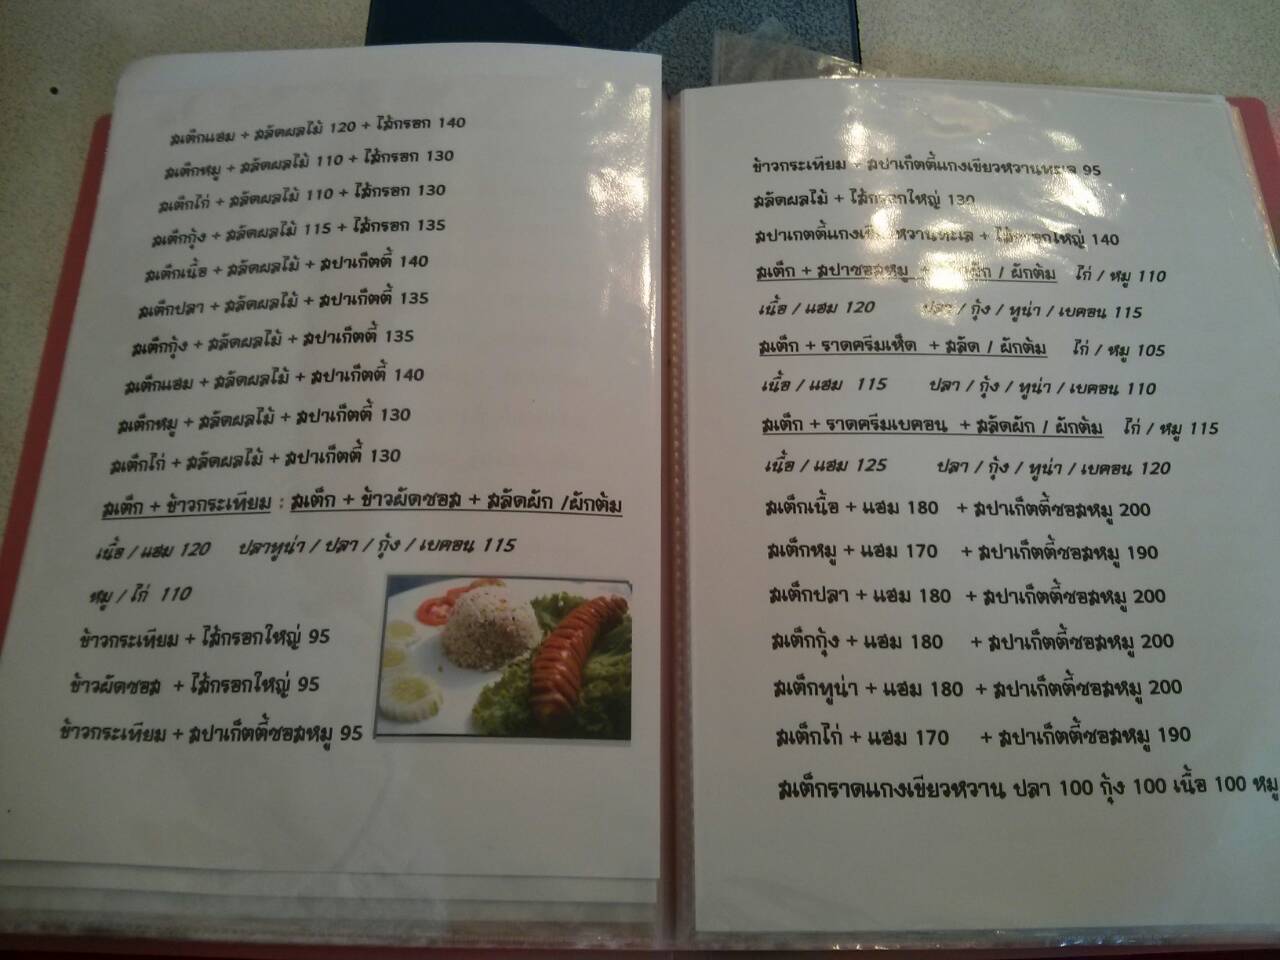 สเต็กแฮม + สลัดผลไม้ 120 + ไส้กรอก 140
สเต็กหมู + สลัดผลไม้ 110 + ไส้กรอก 130
สเต็กไก่ + สลัดผลไม้ 110 + ไส้กรอก 130
สเต็กกุ้ง + สลัดผลไม้ 115 + ไส้กรอก 135
สเต็กเนื้อ + สลัดผลไม้ + สปาเก็ตตี้ 140
สเต็กปลา + สลัดผลไม้ + สปาเก็ตตี้ 135
สเต็กกุ้ง + สลัดผลไม้ + สปาเก็ตตี้ 135
สเต็กแฮม + สลัดผลไม้ + สปาเก็ตตี้ 140
สเต็กหมู + สลัดผลไม้ + สปาเก็ตตี้ 130
สเต็กไก่ + สลัดผลไม้ + สปาเก็ตตี้ 130
สเต็ก + ข้าวกระเทียม : สเต็ก + ข้าวผัดซอส + สลัดผัก /ผักต้ม
เนื้อ / แฮม 120 ปลาทูน่า / ปลา / กุ้ง / เบคอน 115
หมู / ไก่ 110
ข้าวกระเทียม + ไส้กรอกใหญ่ 95
ข้าวผัดซอส + ไส้กรอกใหญ่ 95
ข้าวกระเทียม + สปาเก็ตตี้ซอสหมู 95
ข้าวกระเทียม + สปาเก็ตตี้แกงเขียวหวานทะเล 95
สลัดผลไม้ + ไส้กรอกใหญ่ 130
สปาเกตตี้แกงเขียวหวานทะเล + ไส้กรอกใหญ่ 140
สเต็ก + สปาซอสหมู + / ผักต้ม ไก่ / หมู 110
เนื้อ / แฮม 120 ปลา / กุ้ง / ทูน่า / เบคอน 115
สเต็ก + ราดครีมเห็ด + สลัด / ผักต้ม ไก่ / หมู 105
เนื้อ / แฮม 115 ปลา / กุ้ง / ทูน่า / เบคอน 110
สเต็ก + ราดครีมเบคอน + สลัดผัก / ผักต้ม ไก่ / หมู 115
เนื้อ / แฮม 125 ปลา / กุ้ง / ทูน่า / เบคอน 120
สเต็กเนื้อ + แฮม 180 + สปาเก็ตตี้ซอสหมู 200
สเต็กหมู + แฮม 170 + สปาเก็ตตี้ซอสหมู 190
สเต็กปลา + แฮม 180 + สปาเก็ตตี้ซอสหมู 200
สเต็กกุ้ง + แฮม 180 + สปาเก็ตตี้ซอสหมู 200
สเต็กทูน่า + แฮม 180 + สปาเก็ตตี้ซอสหมู 200
สเต็กไก่ + แฮม 170 + สปาเก็ตตี้ซอสหมู 190
สเต็กราดแกงเขียวหวาน ปลา 100 กุ้ง 100 เนื้อ 100 หมู